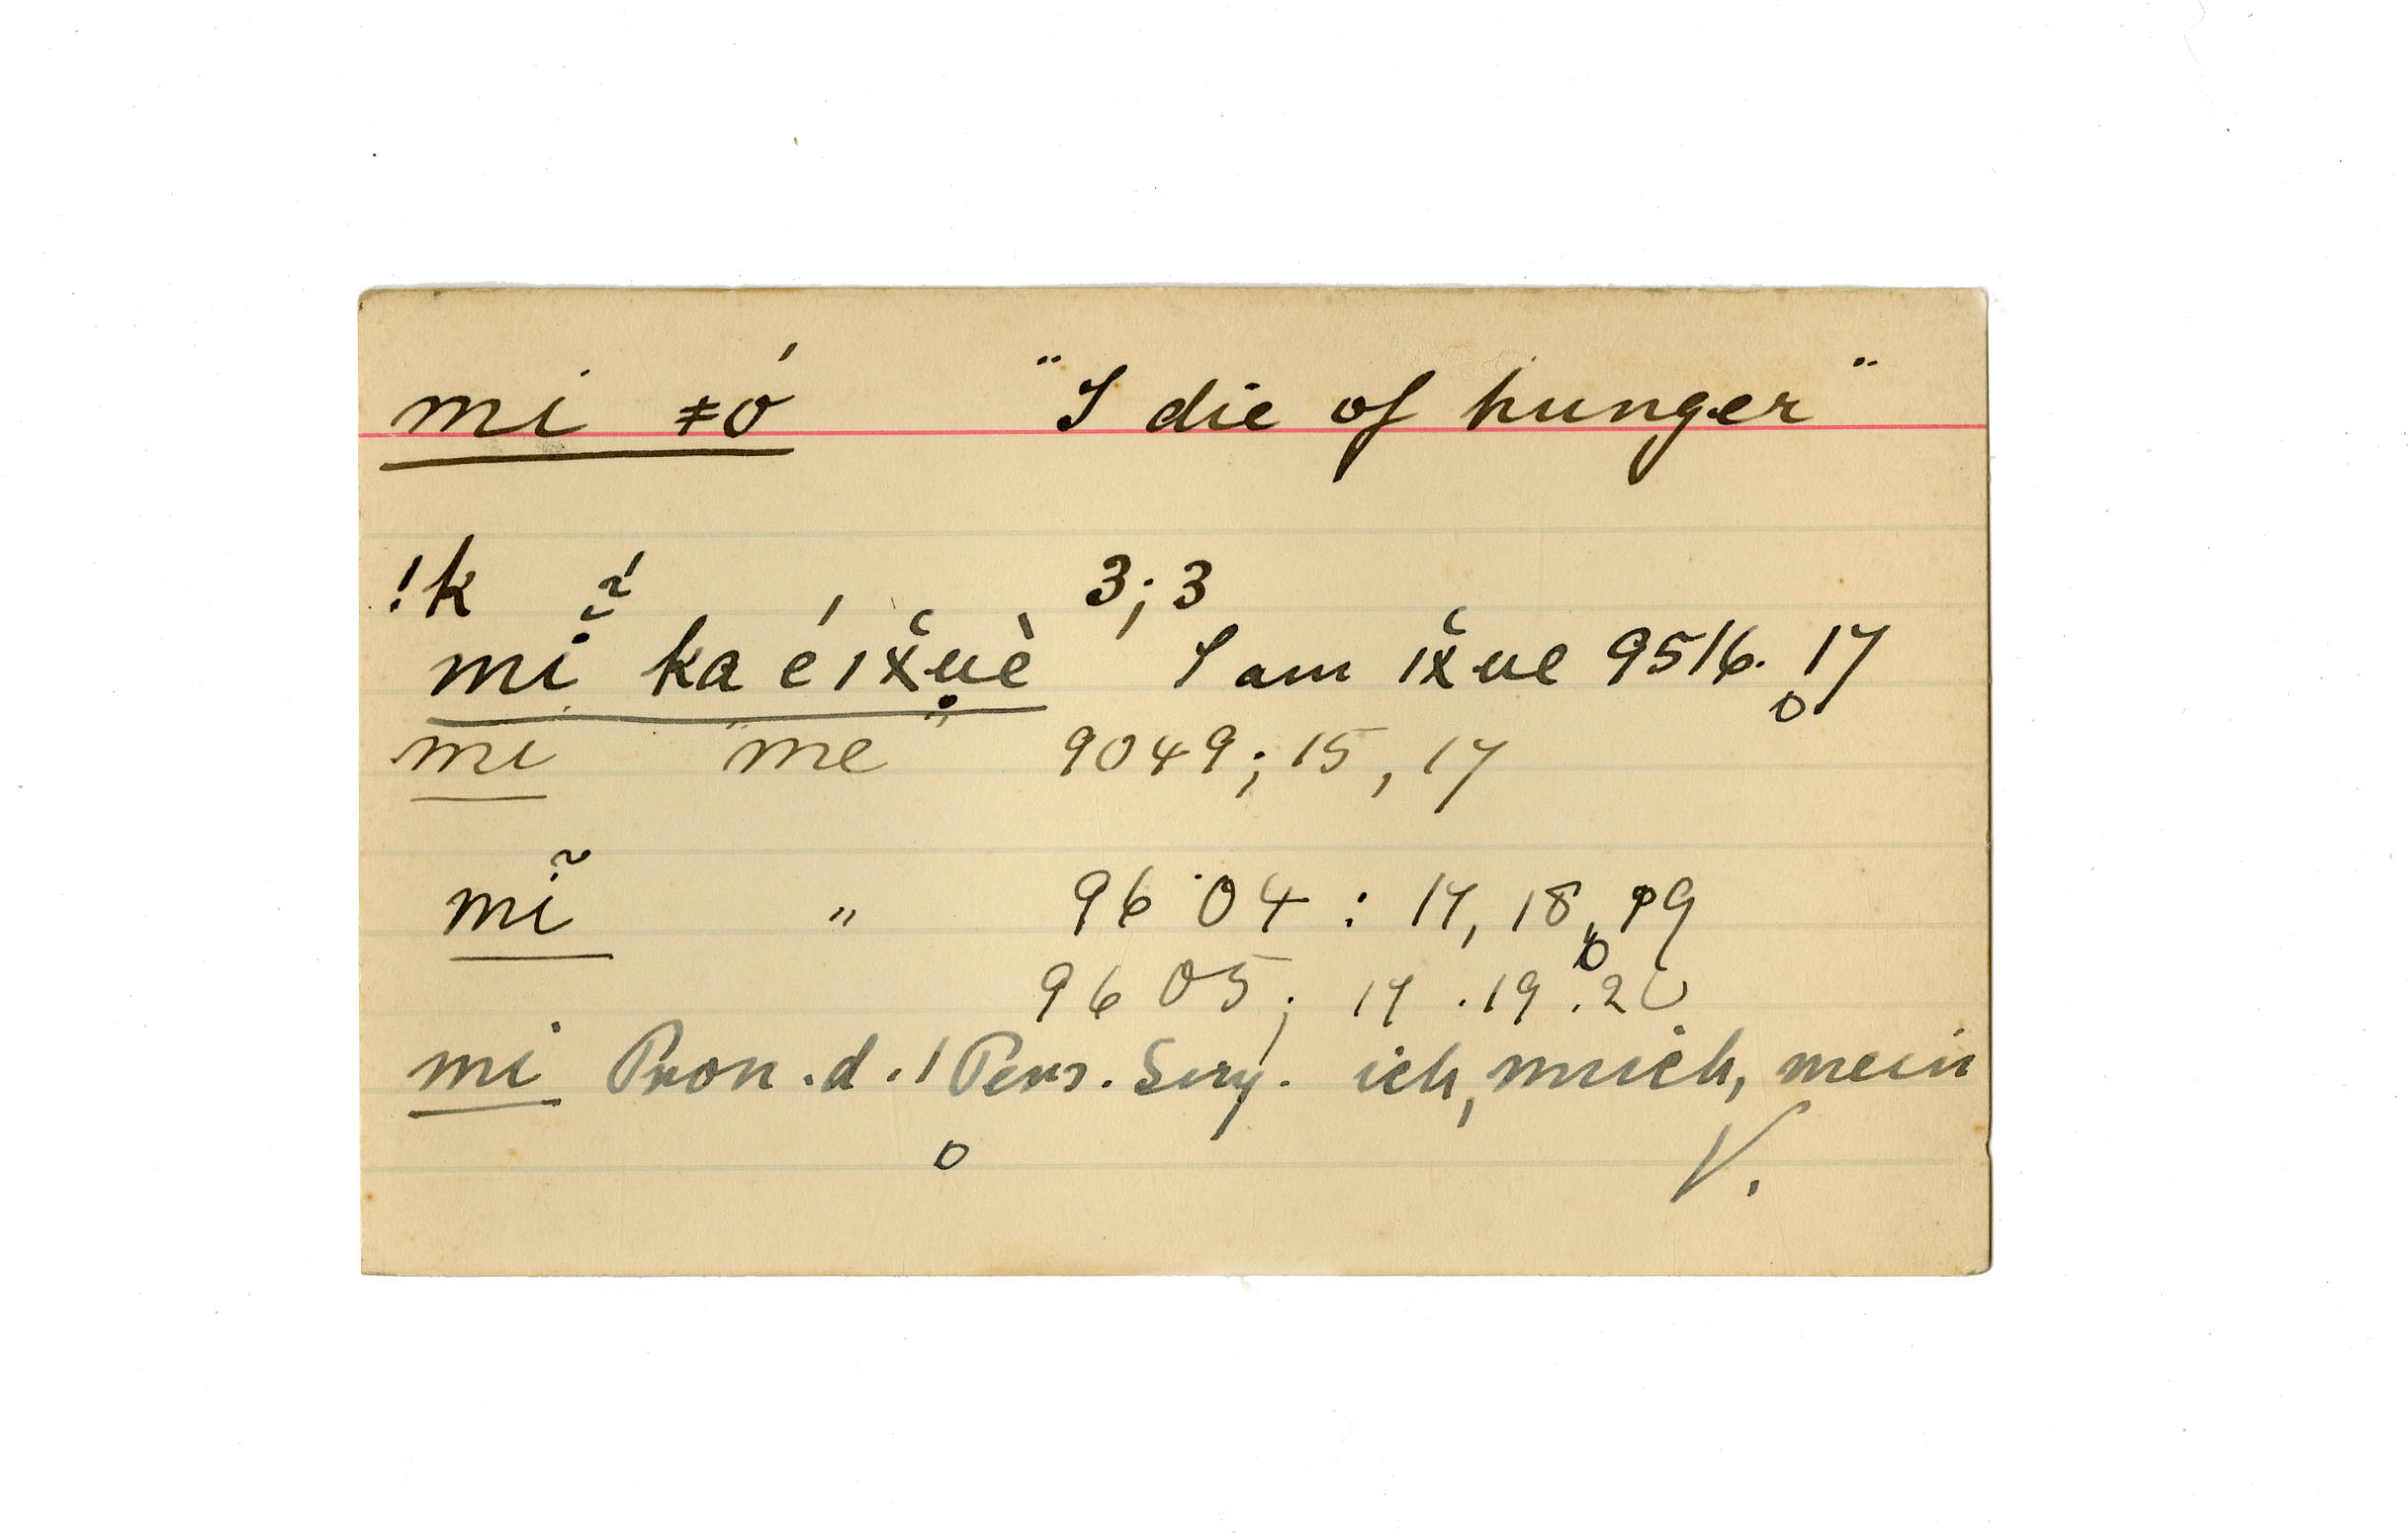 mi ǂó "I die of hunger"
!k 3; 3
mĭ̃ ka é ı x̆u̥è I am ı x̆ue 9516. 17
mi "me" 9049; 15, 17
mĩ " 9604 : 17, 18, 19
9605; 17 . 19 . 20
mi Pron. d. 1 Pers. Sing. ich, mich, mein
o V.